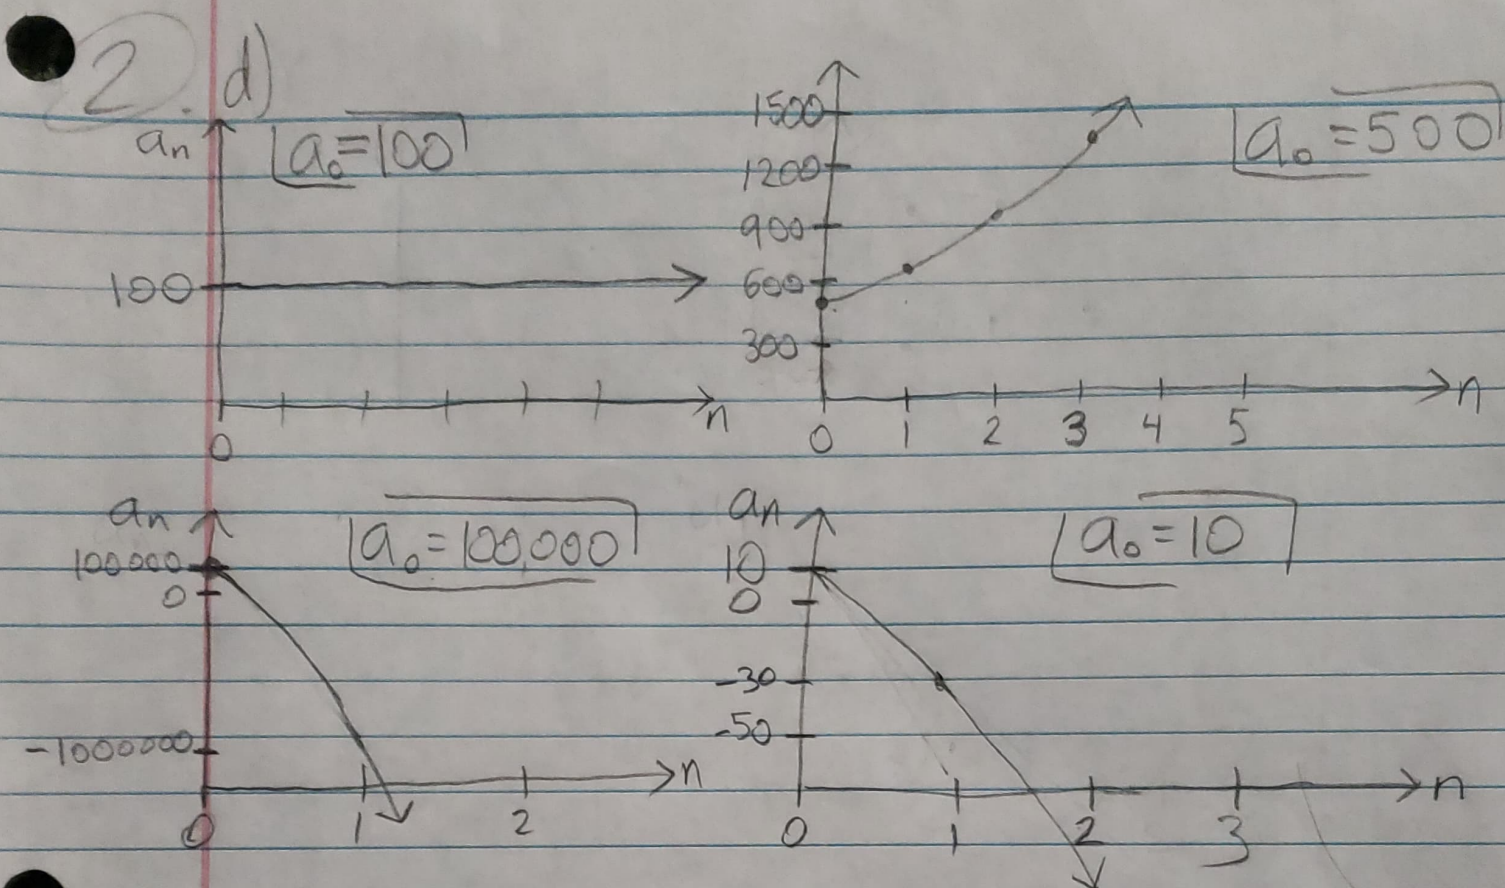 2. d)
aₙ
a₀=100
100
0
n
1500
1200
900
600
300
a₀=500
0 1 2 3 4 5
n
aₙ
100000
0
-1000000
a₀=100,000
0 1 2
n
aₙ
10
0
-30
-50
a₀=10
0 1 2 3
n